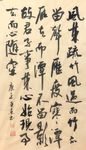 風來疏竹風過而竹不
留聲雁度寒潭
雁去而潭不留影
故君子事來而心始現事
去而心隨空